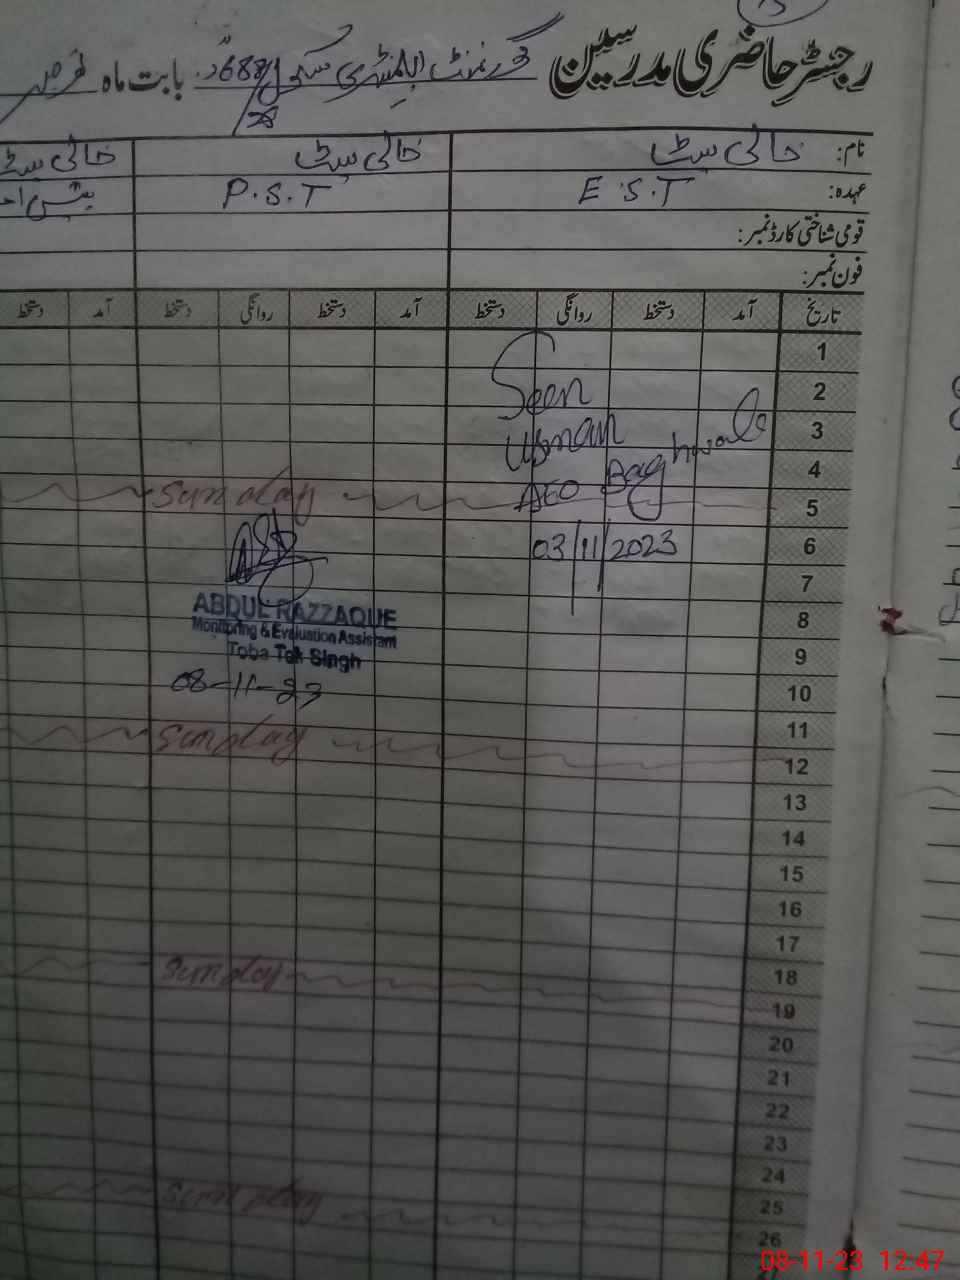 رجسٹر حاضری مدرسین گورنمنٹ ایلیمنٹری سکول 688 بابت ماہ نومبر
نام: خالی سیٹ خالی سیٹ خالی سیٹ
عہدہ: E.S.T P.S.T
قومی شناختی کارڈ نمبر:
فون نمبر:
تاریخ آمد دستخط روانگی دستخط آمد دستخط روانگی دستخط آمد دستخط
1
2 Seen
3 Usman
4
AEO Baghwala
5 Sunday
6 03/11/2023
7
8
ABDUL RAZZAQUE
Monitoring & Evaluation Assistant
Toba Tek Singh
9
10 08-11-23
11
12 Sunday
13
14
15
16
17
18
19 Sunday
20
21
22
23
24
25
26 Sunday
08-11-23 12:47